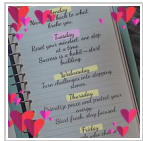 Monday
Never go back to what
broke you.
Tuesday
Reset your mindset, one step
at a time.
Success is a habit—start
building.
Wednesday
Turn challenges into stepping
stones.
Thursday
Prioritize peace and protect your
energy.
Start fresh, stay focused
Friday